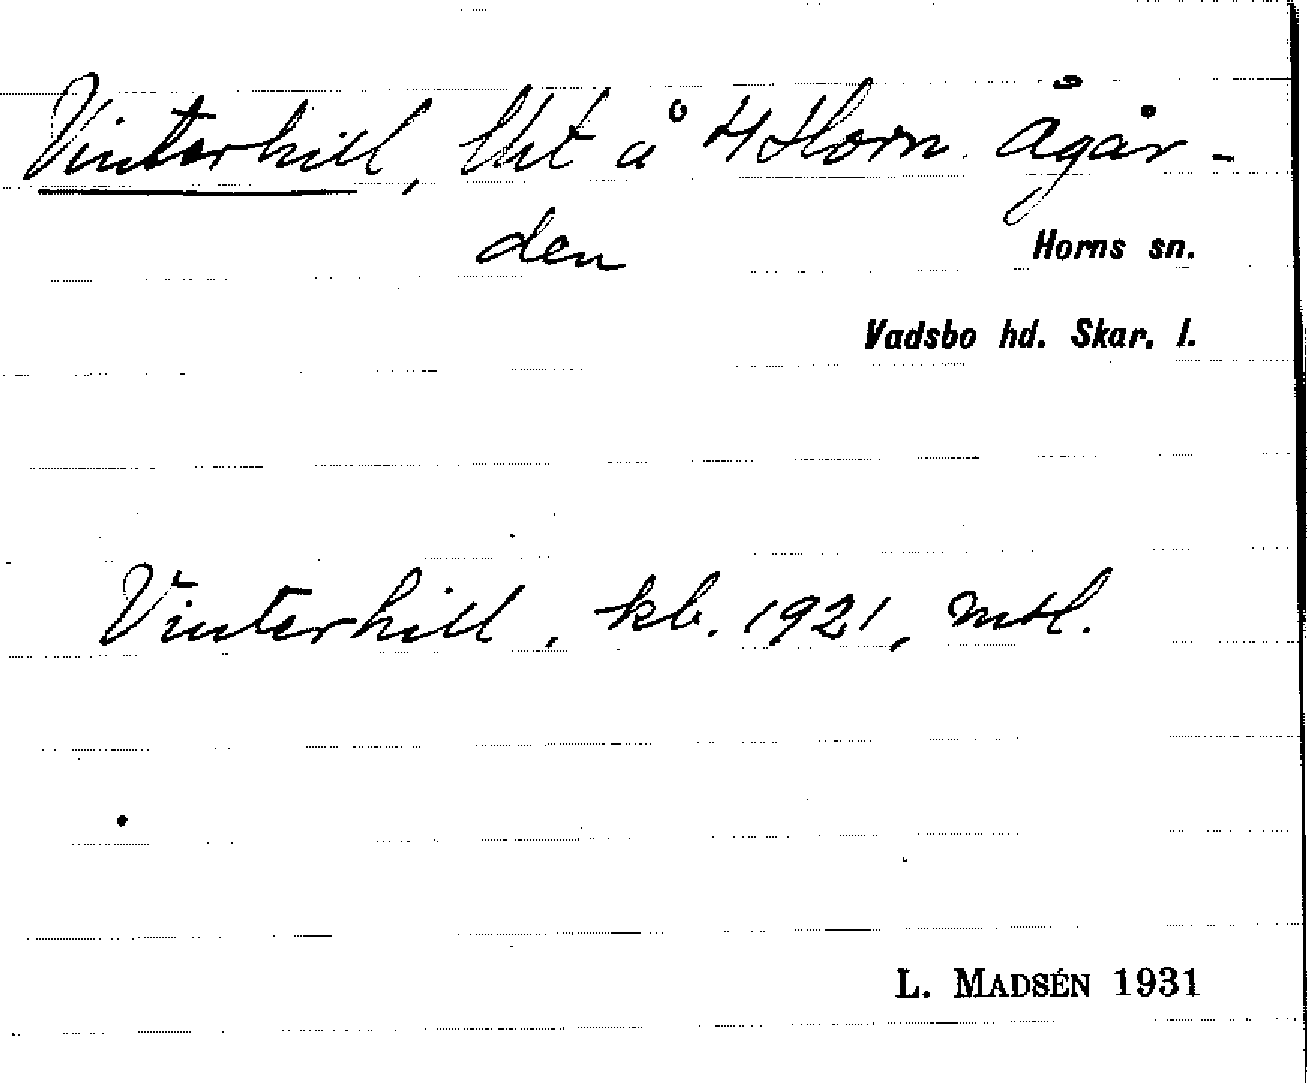 Vinterhill, lht å 4 Horn Ågår-
den
Horns sn.
Vadsbo hd. Skar. l.
Vinterhill, kb. 1921, mtl.
L. MADSÉN 1931